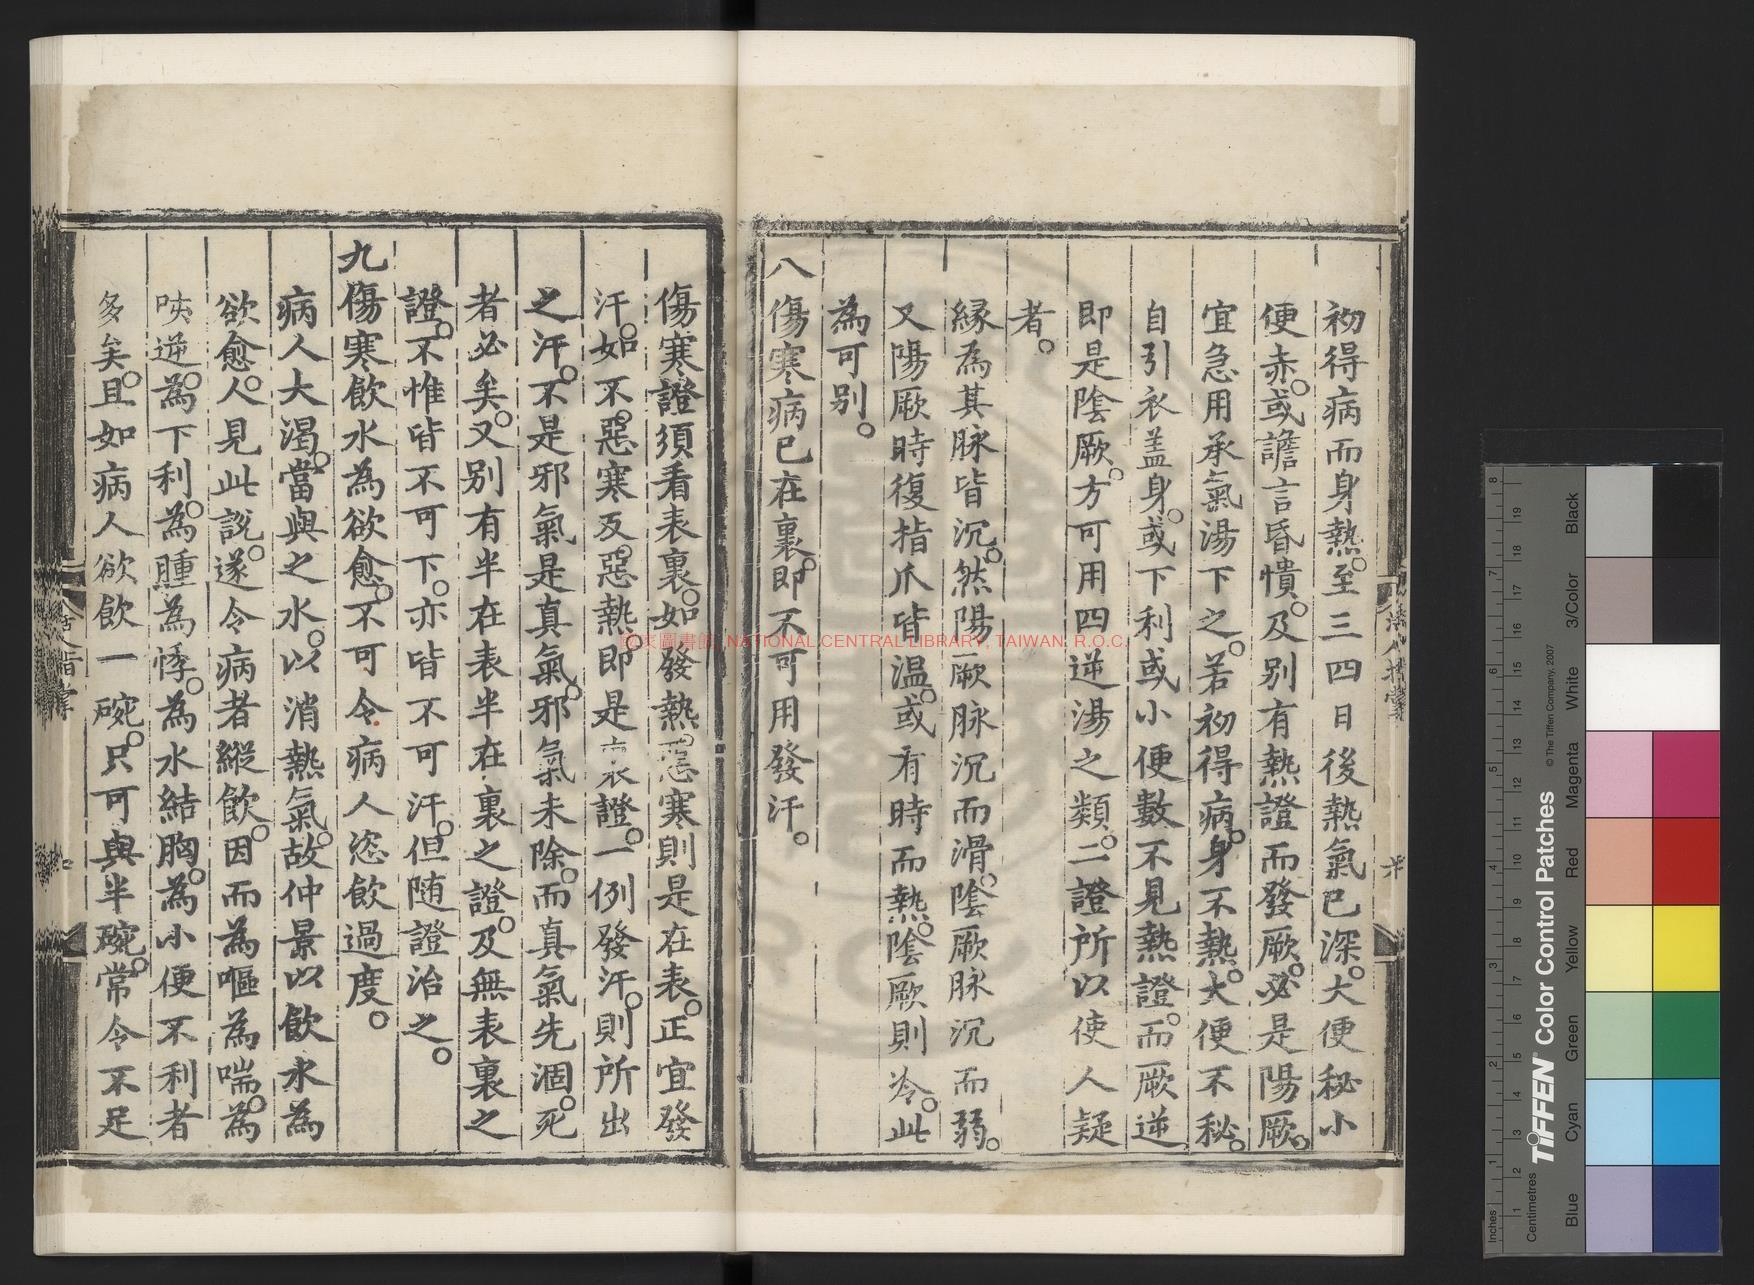 初得病而身熱。至三四日後熱氣已深。大便秘小
便赤。或譫言昏憒。及別有熱證而發厥。必是陽厥。
宜急用承氣湯下之。若初得病。身不熱。大便不秘。
自引衣盖身。或下利或小便數不見熱證。而厥逆
即是陰厥。方可用四逆湯之類。二證所以使人疑
者。
縁為其脉皆沉。然陽厥脉沉而滑。陰厥脉沉而弱。
又陽厥時復指爪皆温。或有時而熱。陰厥則冷。此
為可别。
八傷寒病已在裏。即不可用發汗。
傷寒證須看表裏。如發熱。惡寒則是在表。正宜發
汗。如不惡寒反惡熱即是裏證。一例發汗。則所出
之汗。不是邪氣是真氣。邪氣未除。而真氣先涸。死
者必矣。又别有半在表半在裏之證。及無表裏之
證。不惟皆不可下。亦皆不可汗。但随證治之。
九傷寒飲水為欲愈。不可令病人恣飲過度。
病人大渴。當與之水。以消熱氣。故仲景以飲水為
欲愈。人見此說。遂令病者縱飲。因而為嘔為喘。為
咳逆。為下利。為腫為悸。為水結胸。為小便不利者
多矣。且如病人欲飲一碗。只可與半碗。常令不足
活人指掌
NATIONAL CENTRAL LIBRARY, TAIWAN. R.O.C.
TIFFEN Color Control Patches
© The Tiffen Company, 2007
Inches
Centimetres
Blue
Cyan
Green
Yellow
Red
Magenta
White
3/Color
Black